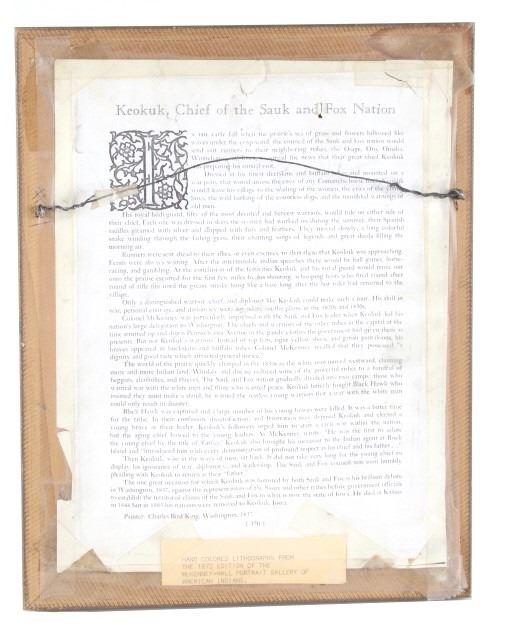 Keokuk, Chief of the Sauk and Fox Nation
IN THE early fall when the prairie's sea of grass and flowers billowed like
waves under the
send out runners to their neighboring tribes, the Osage, Oto, Omaha,
the news that their great chief Keokuk
annual visit.
Dressed in his finest deerskins and buffalo and mounted on a
war pony, that would arouse the envy of any Comanche,
would leave his village to the wailing of the women, the cries of the
the wild barking of the countless dogs, and the mumbled warnings of
old men.
His royal bodyguard, fifty of the most devoted and fiercest warriors, would ride on either side of
their chief. Each one was dressed in skins the women had worked on during the summer, their Spanish
saddles gleamed with silver and dripped with fur and feathers. They moved slowly, a long colorful
snake winding through the fading grass, their chanting songs of legends and great deeds filling the
morning air.
Runners were sent ahead to their allies, or even enemies, to alert them that Keokuk was approaching.
Feasts were always waiting. After the interminable Indian speeches there would be ball games, horse-
racing, and gambling. At the conclusion of the festivities Keokuk and his royal guard would move out
onto the prairie escorted for the first few miles by his shouting, whooping hosts who fired round after
round of rifle fire until the greasy smoke hung like a haze long after the last rider had returned to the
village.
Only a distinguished warrior, chief, and diplomat like Keokuk could make such a tour. His skill in
war, personal courage, and diplomacy were on the plains in the 1820s and 1830s.
Colonel McKenney was particularly impressed with the Sauk and Fox leader when Keokuk led his
nation's large delegation to Washington. The chiefs and warriors of the other tribes in the capital at the
time strutted up and down Pennsylvania Avenue in the gaudy clothes the government had given them as
presents. But not Keokuk's warriors. Instead of top hats, tight yellow shoes, and green pantaloons, his
braves appeared in buckskins and buffalo robes. Colonel McKenney recalled that they possessed "a
dignity and good taste which attracted general notice."
The world of the prairie quickly changed in the 1830s as the white man moved westward, claiming
more and more Indian land. Whiskey and disease reduced some of the powerful tribes to a handful of
beggars, alcoholics, and thieves. The Sauk and Fox nation gradually divided into two camps: those who
wanted war with the white man and those who wanted peace. Keokuk bitterly fought Black Hawk who
insisted they must make a stand; he warned the restless young warriors that a war with the white man
could only result in disaster.
Black Hawk was captured and a large number of his young braves were killed. It was a bitter time
for the tribe. In their confusion, dissatisfaction, and frustration they deposed Keokuk and elected a
young brave as their leader. Keokuk's followers urged him to start a civil war within the nation,
but the aging chief bowed to the young leader. As McKenney wrote, "He was the first to salute
the young chief by the title of 'Father.' Keokuk also brought his successor to the Indian agent at Rock
Island and "introduced him with every demonstration of profound respect as his chief and his father . . ."
Then Keokuk, wise in the ways of men, sat back. It did not take very long for the young chief to
display his ignorance of war, diplomacy, and leadership. The Sauk and Fox council was soon humbly
pleading with Keokuk to return as their "father."
The one great occasion for which Keokuk was honored by both Sauk and Fox is his brilliant debate
in Washington, 1837, against the representatives of the Sioux and other tribes before government officials
to establish the territorial claims of the Sauk and Fox to what is now the state of Iowa. He died in Kansas
in 1848 but in 1883 his remains were removed to Keokuk, Iowa.
Painter: Charles Bird King, Washington, 1837.
HAND COLORED LITHOGRAPHS FROM
THE 1872 EDITION OF THE
McKENNEY-HALL PORTRAIT GALLERY OF
AMERICAN INDIANS.